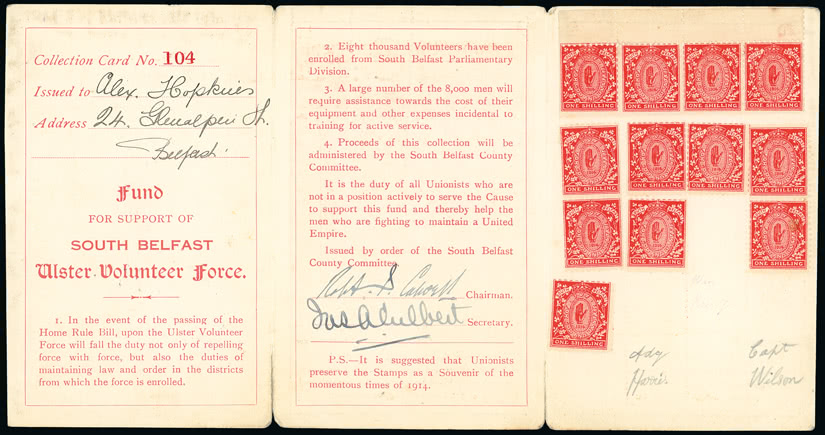 Collection Card No. 104
Issued to Alex. Hopkins
Address 24, Glenalpin St.
Belfast.
Fund
FOR SUPPORT OF
SOUTH BELFAST
Ulster Volunteer Force.
1. In the event of the passing of the
Home Rule Bill, upon the Ulster Volunteer
Force will fall the duty not only of repelling
force with force, but also the duties of
maintaining law and order in the districts
from which the force is enrolled.
2. Eight thousand Volunteers have been
enrolled from South Belfast Parliamentary
Division.
3. A large number of the 8,000 men will
require assistance towards the cost of their
equipment and other expenses incidental to
training for active service.
4. Proceeds of this collection will be
administered by the South Belfast County
Committee.
It is the duty of all Unionists who are
not in a position actively to serve the Cause
to support this fund and thereby help the
men who are fighting to maintain a United
Empire.
Issued by order of the South Belfast
County Committee,
Robt. S. Chairman.
Jas A Culbert Secretary.
P.S.—It is suggested that Unionists
preserve the Stamps as a Souvenir of the
momentous times of 1914.
ONE SHILLING ONE SHILLING ONE SHILLING ONE SHILLING
ONE SHILLING ONE SHILLING ONE SHILLING ONE SHILLING
ONE SHILLING ONE SHILLING ONE SHILLING
ONE SHILLING
Ady Capt
Harris. Wilson